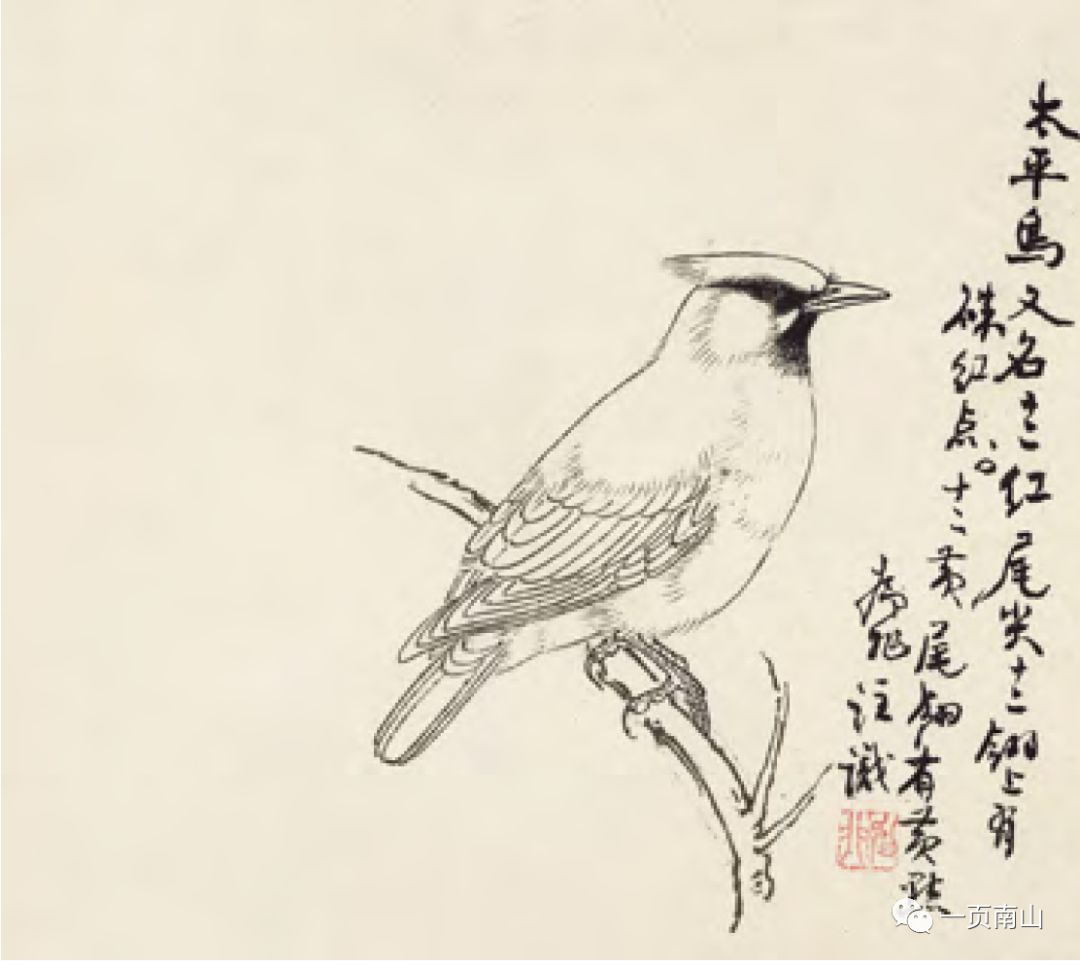 太平鳥又名十二红尾尖十二翎上有
硃红点。十二黄尾翎有黄點
為祉注識
一页南山